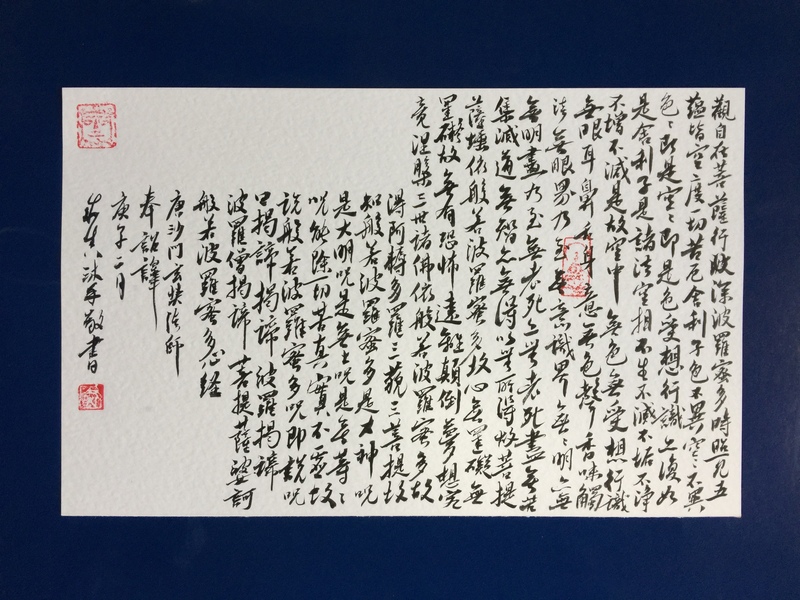 觀自在菩薩行般深波羅蜜多時照見五
蘊皆空度一切苦厄舍利子色不異空〻不異
色〻即是空〻即是色受想行識亦復如
是舍利子是諸法空相不生不滅不垢不淨
不增不減是故空中無色無受想行識
無眼耳鼻舌身意無色聲香味觸
法無眼界乃至無意識界無〻明亦無
無明盡乃至無老死亦無老死盡無苦
集滅道無智亦無得以無所得故菩提
薩埵依般若波羅蜜多故心無罣礙無
罣礙故無有恐怖遠離顛倒夢想究
竟涅槃三世諸佛依般若波羅蜜多故
得阿耨多羅三藐三菩提故
知般若波羅蜜多是大神呪
是大明呪是無上呪是無等〻
呪能除一切苦真實不虛故
說般若波羅蜜多呪即說呪
曰揭諦揭諦波羅揭諦
波羅僧揭諦菩提薩婆訶
般若波羅蜜多心經
唐沙門玄奘法師
奉詔譯
庚子二月
敬書